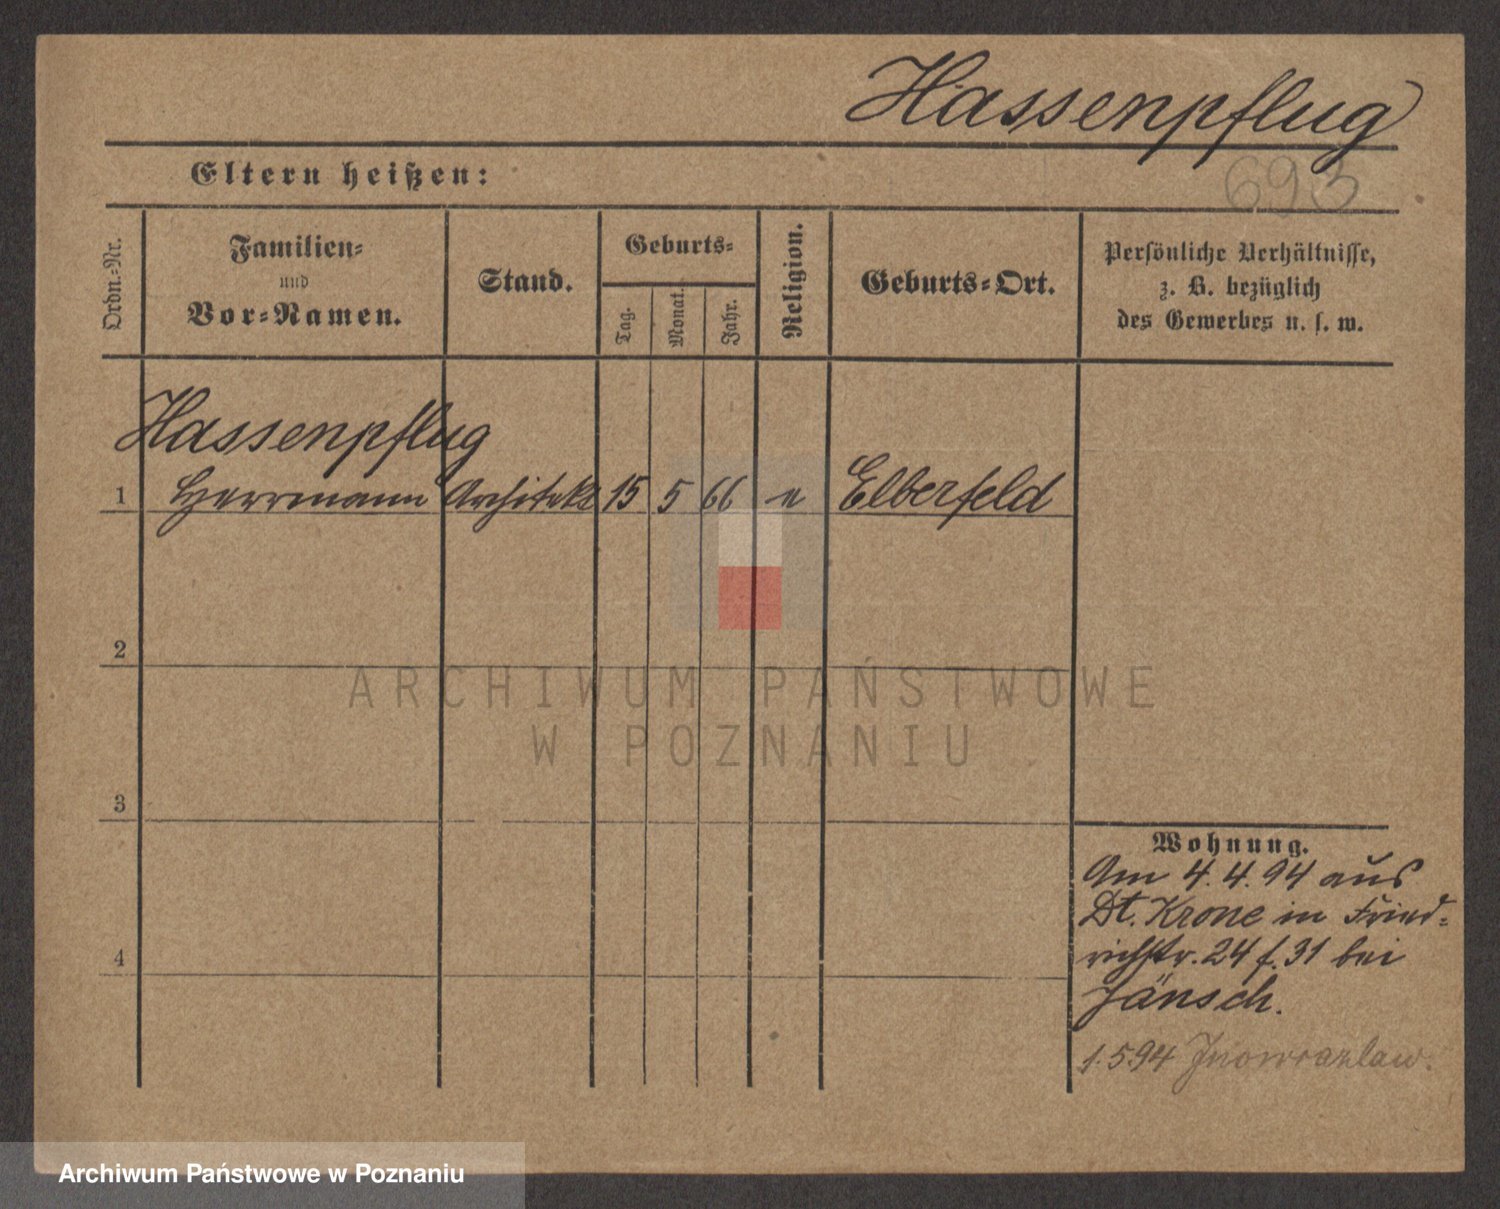 Hassenpflug
Eltern heißen:
693
Ordn.=Nr.
Familien=
und
Vor=Namen.
Stand.
Geburts=
Tag.
Monat.
Jahr.
Religion.
Geburts=Ort.
Persönliche Verhältnisse,
z. B. bezüglich
des Gewerbes u. s. w.
Hassenpflug
1 Herrmann Architekt 15 5 66 e Elberfeld
2
ARCHIWUM PAŃSTWOWE
W POZNANIU
3
Wohnung.
Am 4.4.94 aus
Dt. Krone in Fried=
richstr. 24 f. 31 bei
Jänsch.
4
1.5.94 Inowrazlaw.
Archiwum Państwowe w Poznaniu